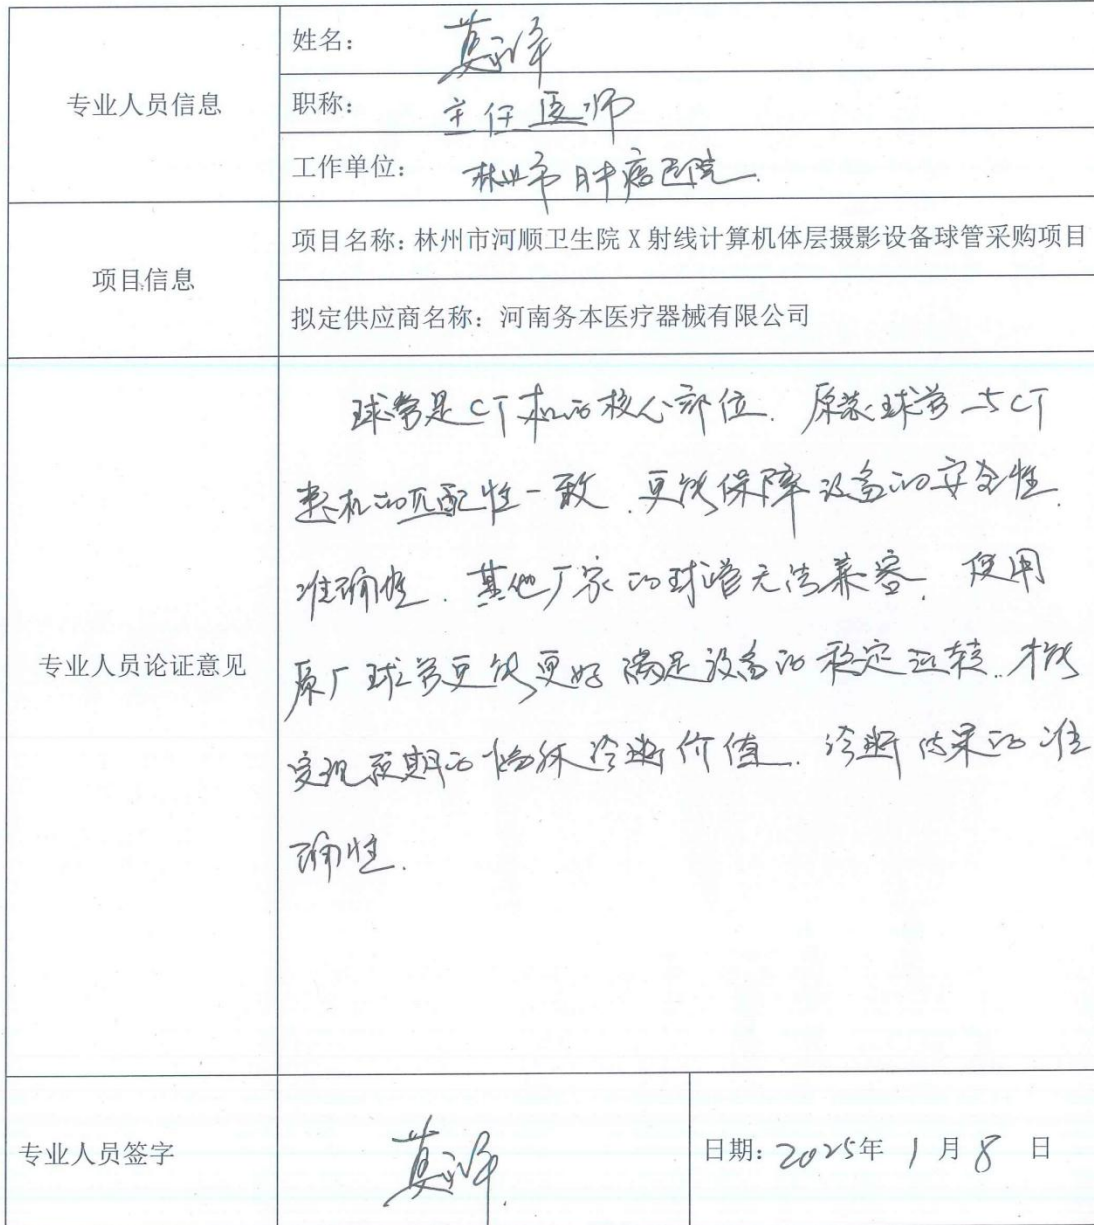 专业人员信息
姓名:
职称: 主任医师
工作单位: 林州市肿瘤医院
项目信息
项目名称: 林州市河顺卫生院 X 射线计算机体层摄影设备球管采购项目
拟定供应商名称: 河南务本医疗器械有限公司
专业人员论证意见
球管是CT机的核心部位. 原装球管与CT
整机的匹配性一致. 更能保障设备的安全性.
准确性. 其他厂家的球管无法兼容. 使用
原厂球管更能更好满足设备的稳定运转. 才能
实现预期的临床诊断价值. 诊断结果的准
确性.
专业人员签字
日期: 2025年 1 月 8 日